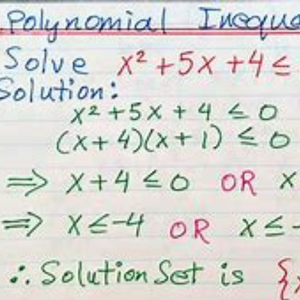 Polynomial Inequa
Solve x² + 5x + 4 ≤
Solution:
x² + 5x + 4 ≤ 0
(x + 4)(x + 1) ≤ 0
⇒ x + 4 ≤ 0 OR x
⇒ x ≤ -4 OR x ≤ -
∴ Solution Set is {